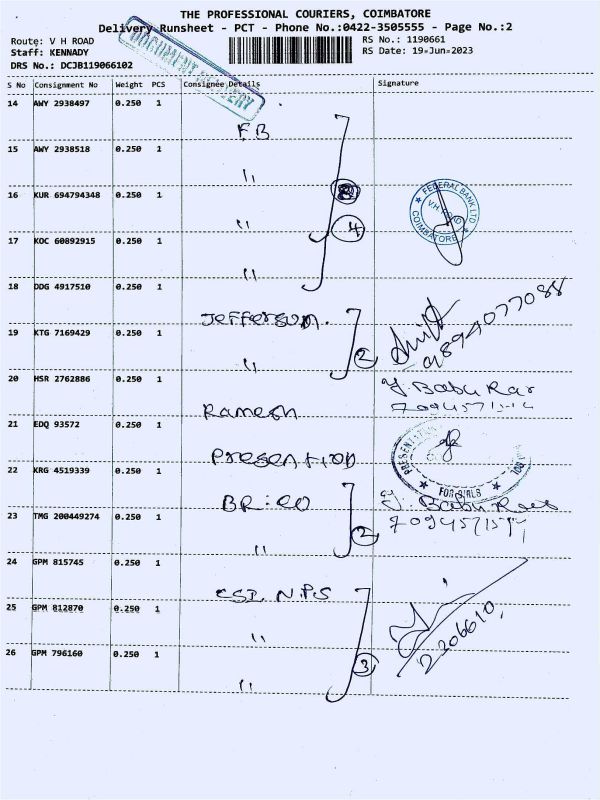 THE PROFESSIONAL COURIERS, COIMBATORE
Delivery Runsheet - PCT - Phone No.:0422-3505555 - Page No.:2
Route: V H ROAD
RS No.: 1190661
Staff: KENNADY
RS Date: 19-Jun-2023
DRS No.: DCJB119066102
DOCUMENT DELIVERY
S No Consignment No Weight PCS Consignee Details Signature
14 AWY 2938497 0.250 1
FB
15 AWY 2938518 0.250 1
"
16 KUR 694794348 0.250 1
FEDERAL BANK LTD
V.H. ROAD
COIMBATORE
" 4
17 KOC 60892915 0.250 1
"
18 DDG 4917510 0.250 1
Jefferson.
9894077088
19 KTG 7169429 0.250 1
" 2
20 HSR 2762886 0.250 1
Y. Babu Rao
Ramesh
21 EDQ 93572 0.250 1
PRESENTATION
FOR GIRLS
Presention
22 KRG 4519339 0.250 1
BR: CO
Y. Babu Rao
23 TMG 200449274 0.250 1
" 2
24 GPM 815745 0.250 1
CSI. N.P.S
25 GPM 812870 0.250 1
"
2206610,
26 GPM 796160 0.250 1
3
"